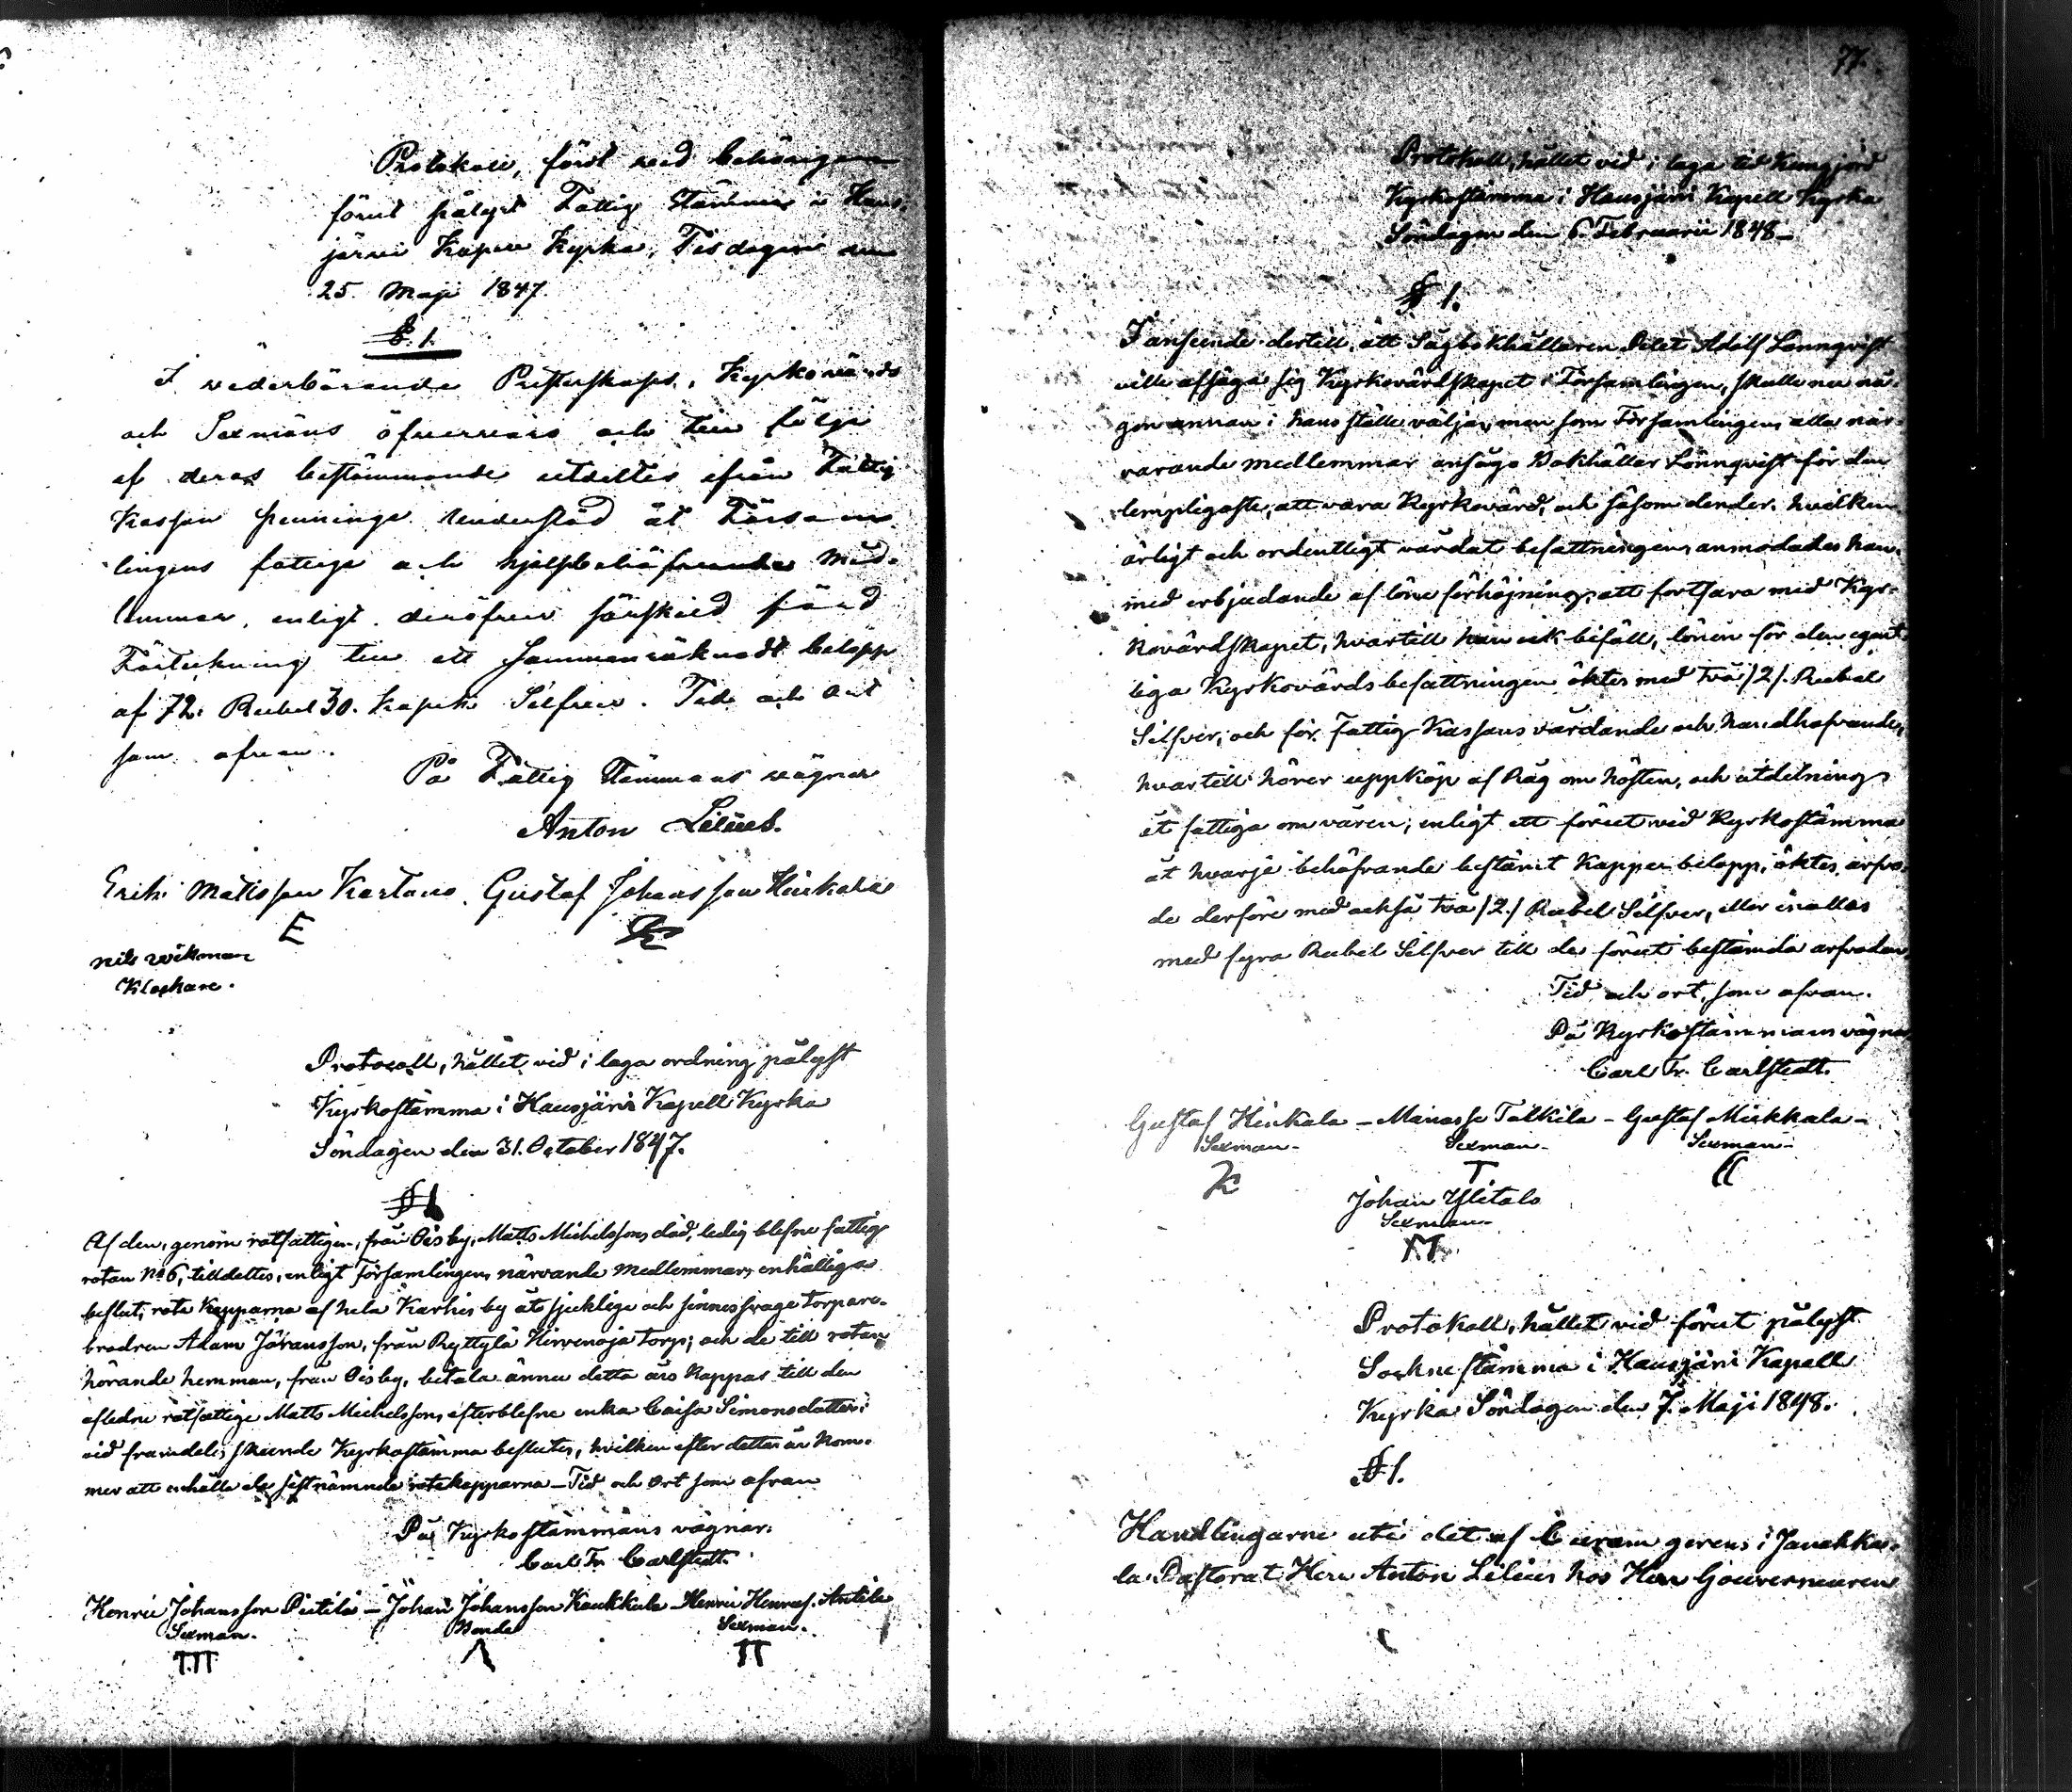 Protokoll, fördt wid behörigen
förut pålyst Fattig Stämma i Haus-
järwi Kapell Kyrka, Tisdagen den
25. Maji 1847.
§. 1.
I wederbörande Presterskaps, Kyrkowärds
och Sexmäns öfverwaro och till följe
af deras bestämmande utdeltes ifrån Fattig
Kassan pennings understöd åt Försam-
lingens fattige och hjelpbehöfwande Med-
lemmar, enligt deröfwer särskild förd
Förteckning till ett sammanräknadt belopp
af 72. Rubel 30. Kopek Silfwer. Tid och Ort
som ofwan.
På Fattig Stämmans wägnar
Anton Lilius.
Erik Matsson Kartano. Gustaf Johansson Hiukala
E
Nils Wikman
Klockare.
Protocoll, hållet vid i laga ordning pålyst
Kyrkostämma i Hausjärvi Kapell Kyrka
Söndagen den 31. October 1847.
§ 1
Af den, genom rotfattigen, från Oisby, Matts Michelssons död, ledig blefne fattig
rotan N:o 6, tilldeltes, enligt Församlingens närvarande medlemmars enhälliga
beslut, rote kapparna af hela Karhis by åt sjuklige och sinnessvage torpare-
brodren Adam Jöransson, från Ryttylä Hirvenoja torp; och de till rotan
hörande hemman, från Oisby, betala ännu detta års kappar till den
afledne rotfattige Matts Michelssons efterblefne enka Caisa Simonsdotter;
vid framdeles skeende Kyrkostämma beslutes, hvilken efter detta år kom-
mer att erhålla de sistnämnde rotekapparna – Tid och ort som ofvan
På Kyrkostämmans vägnar:
Carl Fr. Carlstedt.
Henric Johansson Pietilä – Johan Johansson Kaukkala – Henric Henricss. Anttila
Sexman. Bonde Sexman.
77.
Protokoll, hållet vid i laga tid kungjord
Kyrkostämma i Hausjärvi Kapell Kyrka
Söndagen den 6. Februarii 1848 –
§ 1.
I anseende dertill, att Sågbokhållaren Adolf Lönnqvist
ville afsäga sig Kyrkovärdskapet i Församlingen, skulle nu nå-
gon annan i hans ställe väljas, men som Församlingens alla när-
varande medlemmar ansågo Bokhållar Lönnqvist för den
lempligaste, att vara Kyrkovärd, och såsom den der, hvilken
ärligt och ordentligt vårdat befattningen, anmodades han,
med erbjudande af löne förhöjning, att fortfara med Kyr-
kovärdskapet, hvartill han gick bifall, lönen för den egent-
liga Kyrkovärdsbefattningen öktes med två /2/. Rubel
Silfver, och för Fattig Kassans vårdande och handhafvande,
hvartill hörer uppköp af Råg om hösten, och utdelning
åt fattiga om våren, enligt ett förut vid Kyrkostämma
åt hvarje behöfvande bestämt Kappe belopp, öktes arfvo-
de derföre med också två /2./ Rubel Silfver, eller inalles
med fyra Rubel Silfver till de förut bestämda arfvoden.
Tid och ort, som ofvan.
På Kyrkostämmans vägnar
Carl Fr. Carlstedt.
Gustaf Hiukala – Manasse Talkila – Gustaf Mickkala –
Sexman – Sexman – Sexman –
T
Johan Ylitalo
Sexman –
Protokoll, hållet vid förut pålyst
Sockne stämma i Hausjärvi Kapell
Kyrka Söndagen den 7. Maji 1848.
§ 1.
Handlingarne uti det af Curam gerens i Janakka-
la Pastorat Herr Anton Lilius hos Herr Gouverneuren